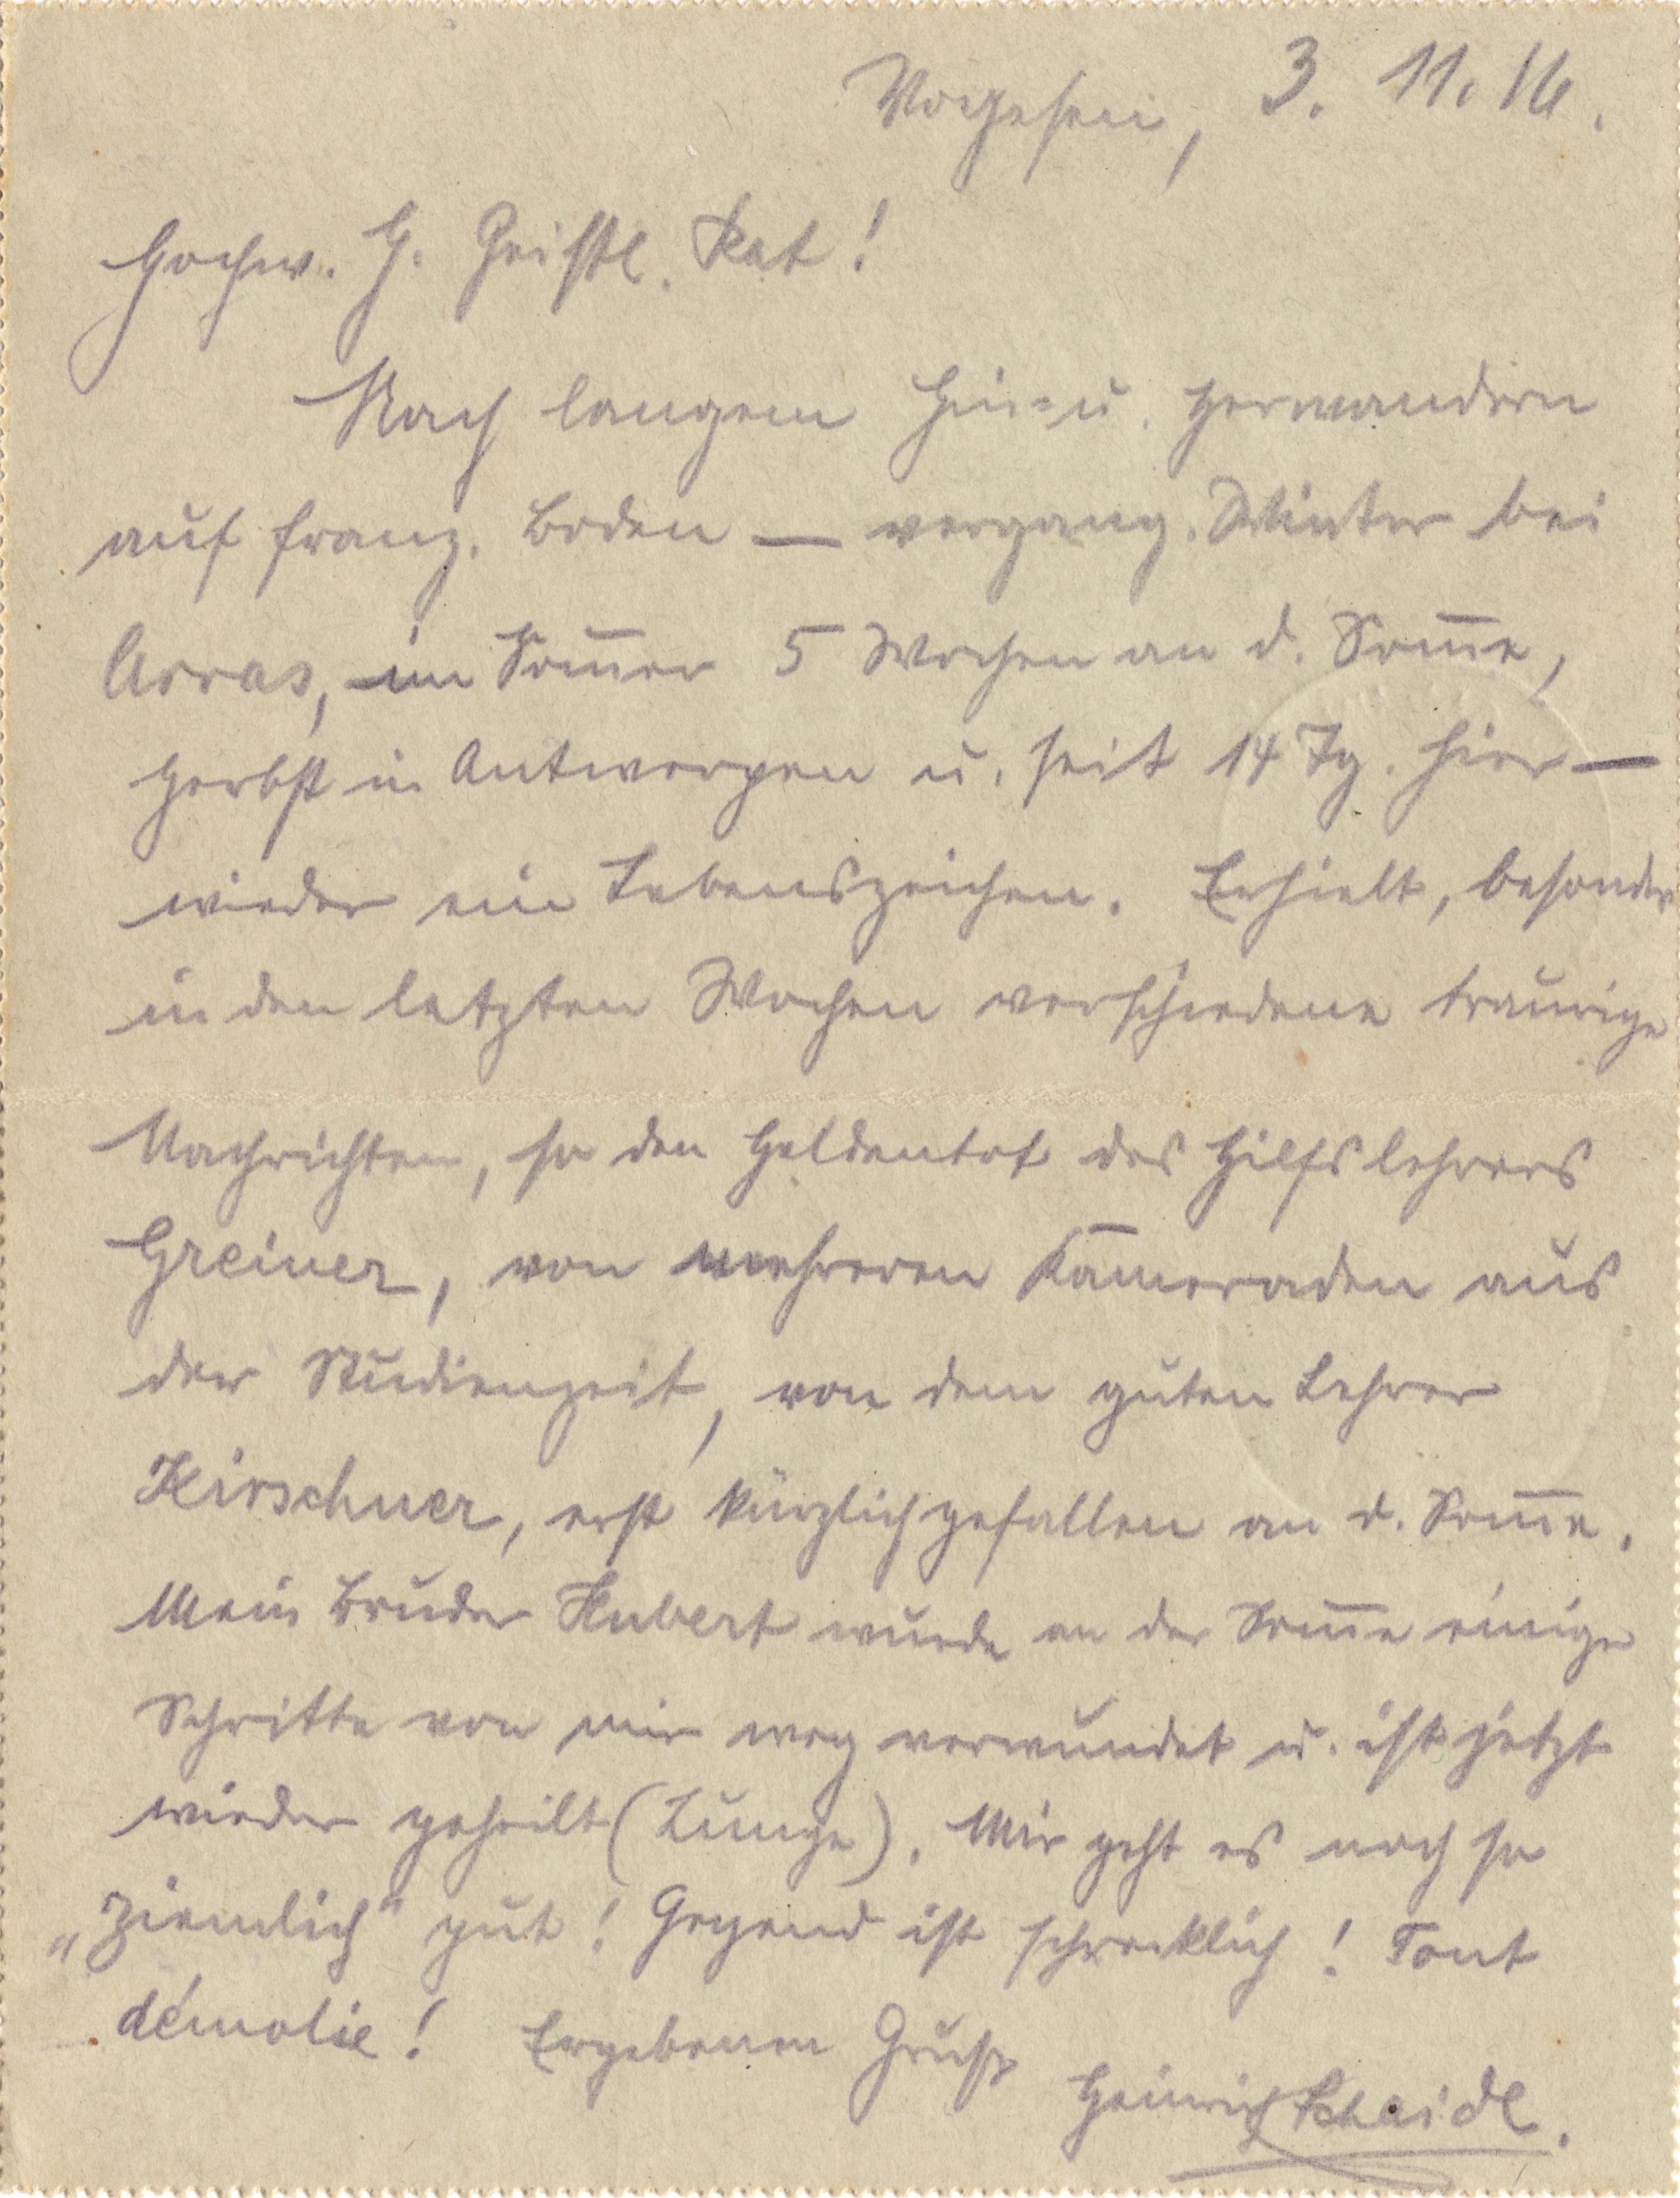 Vogesen, 3. 11. 16.
Hochw. H. Geistl. Rat!
Nach langem Hin- u. Herwandern
auf franz. Boden — vergang. Winter bei
Arras, im Som̅er 5 Wochen an d. Som̅e,
Herbst in Antwerpen u. seit 14 Tg. hier —
wieder ein Lebenszeichen. Erhielt, besonders
in den letzten Wochen verschiedene traurige
Nachrichten, so den Heldentot des Hilfslehrers
Greiner, von mehreren Kameraden aus
der Studienzeit, von dem guten Lehrer
Kirschner, erst kürzlich gefallen an d. Som̅e.
Mein Bruder Hubert wurde an der Som̅e einige
Schritte von mir weg verwundet u. ist jetzt
wieder geheilt (Lunge). Mir geht es noch so
„ziemlich“ gut! Gegend ist schrecklich! Tout
démolie! Ergebenen Gruß
Heinrich Scheidl.